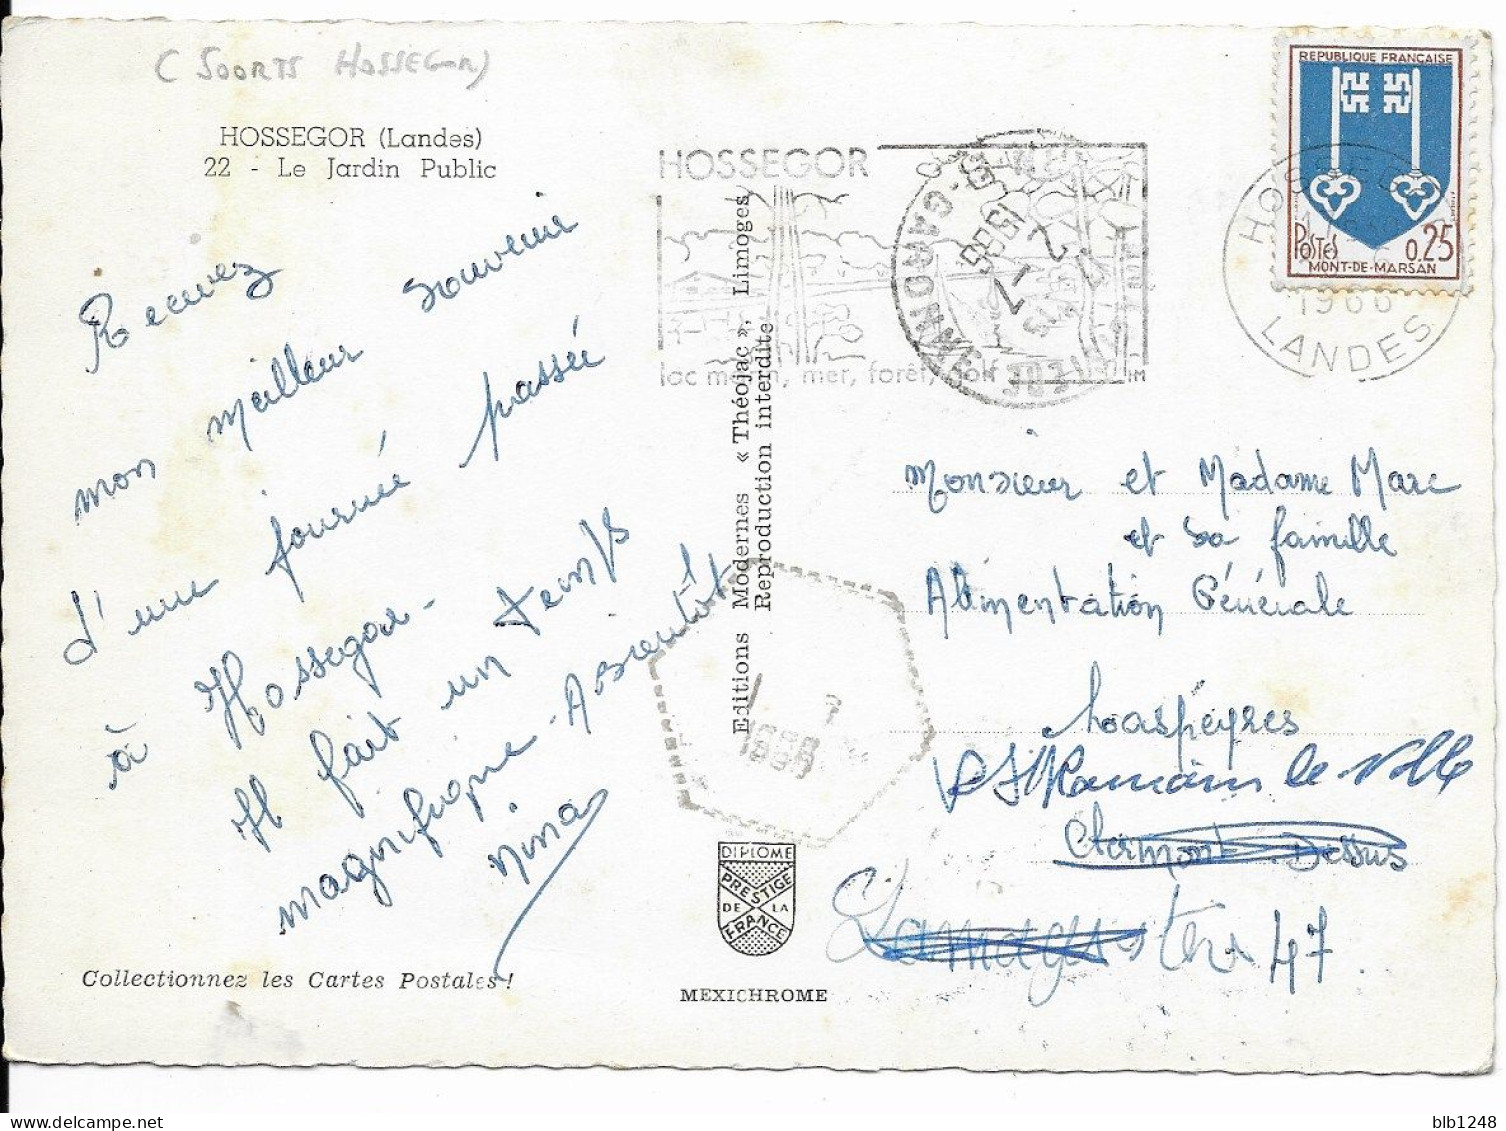 ( SOORTS HOSSEGOR)
HOSSEGOR (Landes)
22 - Le Jardin Public
Recevez
mon meilleur souvenir
d'une journée passée
à Hossegor -
Il fait un temps
magnifique - A bientôt
Nina
Collectionnez les Cartes Postales !
Editions Modernes « Théojac », Limoges
Reproduction interdite
DIPLOME
PRESTIGE
DE LA
FRANCE
MEXICHROME
HOSSEGOR
lac marin, mer, forêt, golf
GARONNE
1966
REPUBLIQUE FRANÇAISE
POSTES 0,25
MONT-DE-MARSAN
HOSSEGOR
1966
LANDES
Monsieur et Madame Marc
et sa famille
Alimentation Générale
Laspeyres
St Romain le Noble
Clermont Dessus
47
blb1248